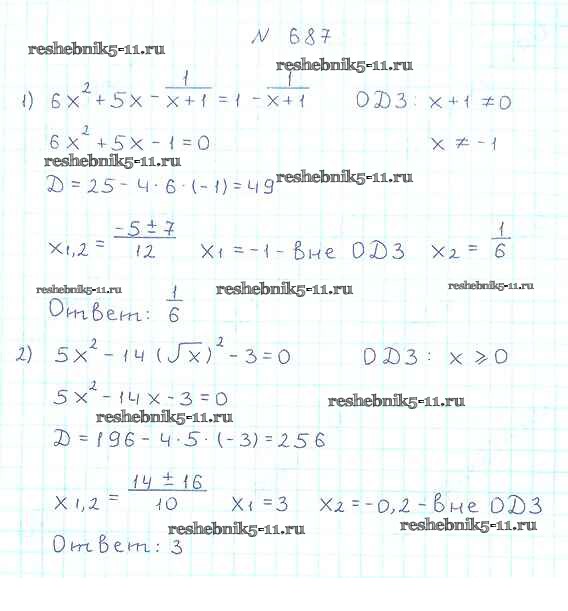 N 687
reshebnik5-11.ru
reshebnik5-11.ru
1) 6x² + 5x - 1/(x+1) = 1 - 1/(x+1) ОДЗ: x+1 ≠ 0
6x² + 5x - 1 = 0 x ≠ -1
reshebnik5-11.ru
D = 25 - 4·6·(-1) = 49 reshebnik5-11.ru
x1,2 = (-5 ± 7)/12 x1 = -1 - вне ОДЗ x2 = 1/6
reshebnik5-11.ru reshebnik5-11.ru reshebnik5-11.ru
Ответ: 1/6
2) 5x² - 14(√x)² - 3 = 0 ОДЗ: x ⩾ 0
5x² - 14x - 3 = 0 reshebnik5-11.ru
reshebnik5-11.ru
D = 196 - 4·5·(-3) = 256
x1,2 = (14 ± 16)/10 x1 = 3 x2 = -0,2 - вне ОДЗ
reshebnik5-11.ru reshebnik5-11.ru
Ответ: 3